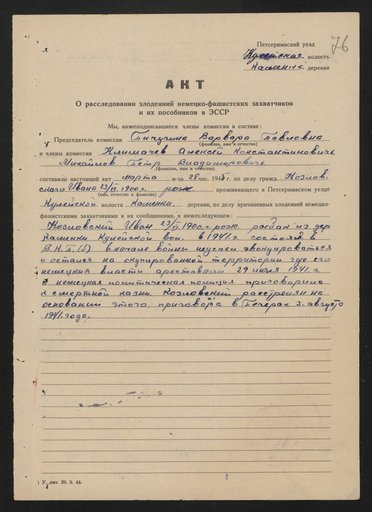 76
Петсеримаский уезд
Кулейская волость
Каменка деревня
АКТ
О расследовании злодеяний немецко-фашистских захватчиков
и их пособников в ЭССР
Мы, нижеподписавшиеся члены комиссии в составе:
Председатель комиссии Пичугина Варвара Павловна
(фамилия, имя и отчество)
и члены комиссии Климачев Алексей Константинович
Михайлов Петр Владимирович
(фамилия, имя и отчество)
составили настоящий акт марта м-ца 28 час. 194 г. по делу гражд. Козлов
Иван 23/VI 1900 г. рож. проживающего в Петсеримаском уезде
(имя, отчество и фамилия)
Кулейской волости Каменки деревни, по делу причиненных злодеяний немецко-
фашистскими захватчиками и их сообщниками, в нижеследующем:
Козловский Иван 23/VI 1900 г. рож. рыбак из дер
Каменки Кулейской вол. в 1941 г. состоял в
В.К.П.(б) В начале войны неуспел эвакуироваться
и остался на окупированной территории где его
немецкия власти арестовали 29 июля 1941 г.
немецкая политическая полиция приговорила
к смертной казни. Козловский расстрелян на
основании этого приговора в Печерах 3. августа
1941 года.
У. лит. 20. 9. 44.